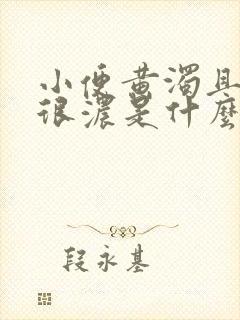 小便黄濁且
很濃是什麼
段永基